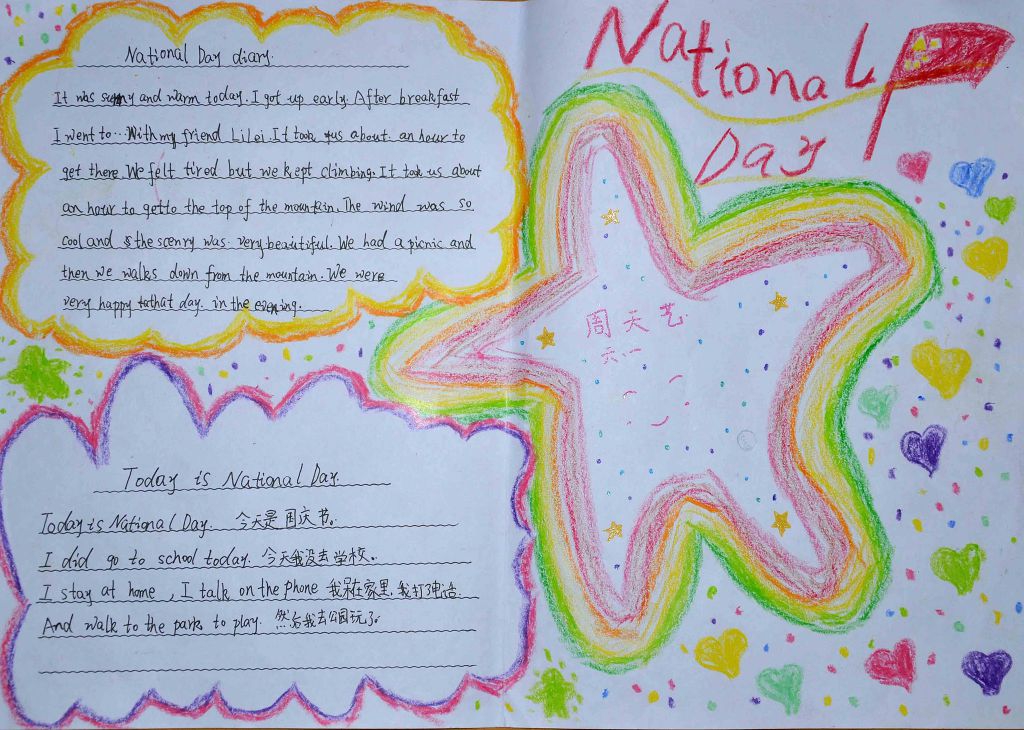 National Day diary.
It was sunny and warm today. I got up early. After breakfast
I went to... With my friend LiLei. It took us about an hour to
get there. We felt tired but we kept climbing. It took us about
an hour to getto the top of the mountain. The wind was so
cool and the scenry was very beautiful. We had a picnic and
then we walks down from the mountain. We were
very happy that day in the evening.
National
Day
周天艺
六一
Today is National Day.
Today is National Day. 今天是国庆节。
I did go to school today. 今天我没去学校。
I stay at home, I talk on the phone 我呆在家里,我打了电话
And walk to the park to play. 然后我去公园玩了。